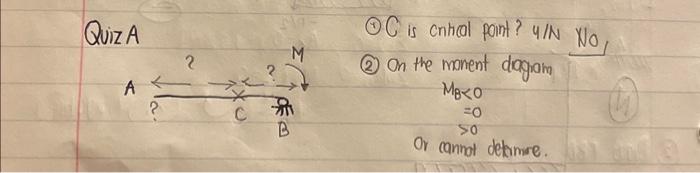 Quiz A
① C is critical point? Y/N No,
? ? M
A
? C
B
② On the moment diagram
MB<0
=0
>0
Or cannot determine.